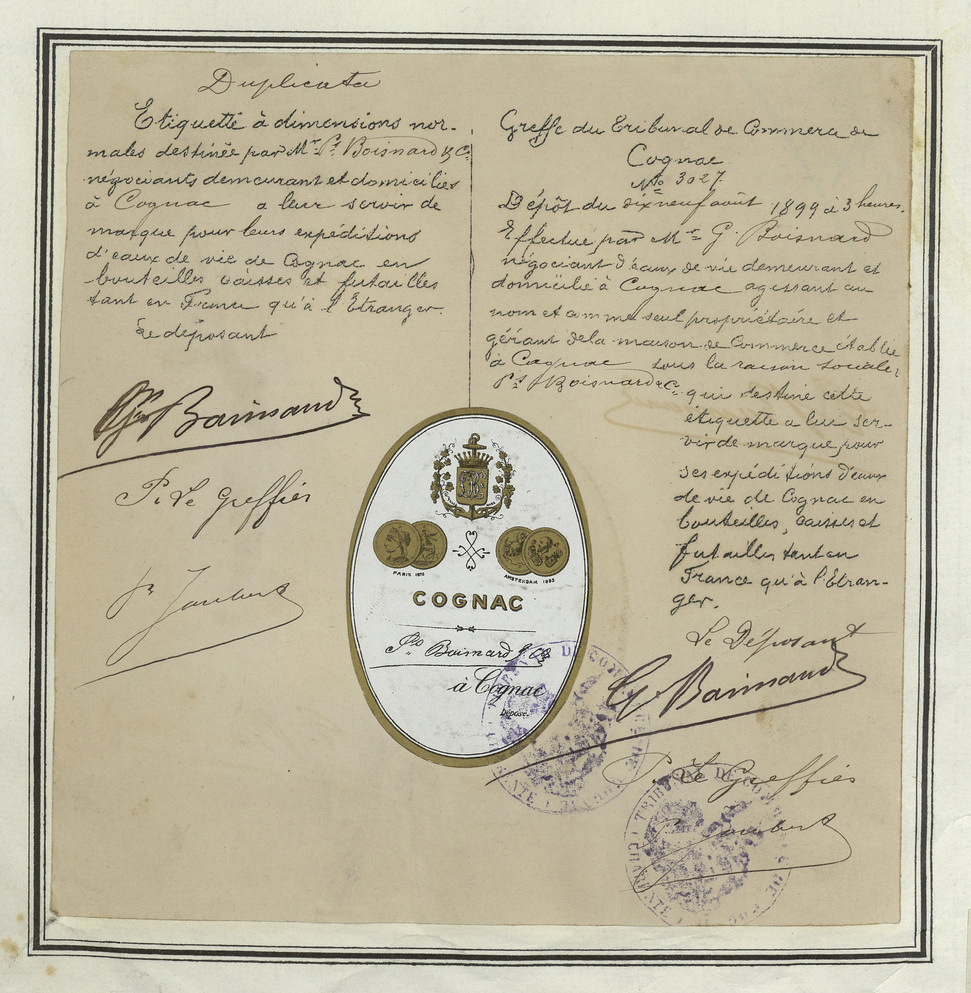 Duplicata
Etiquette à dimensions nor-
males destinée par Mr Ps Boisnard & Cie
négociants demeurant et domiciliés
à Cognac a leur servir de
marque pour leurs expéditions
d'eaux de vie de Cognac en
bouteilles caisses et futailles
tant en France qu'à l'Etranger.
Le déposant
G. Boisnard
P. Le Greffier
Joubert
Greffe du Tribunal de Commerce de
Cognac
No 3027
Dépôt du dix neuf août 1899 à 3 heures.
Effectué par Mr G. Boisnard
négociant d'eaux de vie demeurant et
domicilié à Cognac agissant au
nom et comme seul propriétaire et
gérant de la maison de Commerce établie
à Cognac sous la raison sociale:
Ps Boisnard & Cie qui destine cette
étiquette a lui ser-
vir de marque pour
ses expéditions d'eaux
de vie de Cognac en
bouteilles, caisses et
futailles tant en
France qu'à l'Etran-
ger.
Le Déposant
G. Boisnard
P. Le Greffier
Joubert
PARIS 1878
AMSTERDAM 1883
COGNAC
Ps Boisnard & Cie
à Cognac
Déposé.
TRIBUNAL DE COM
CHARENTE